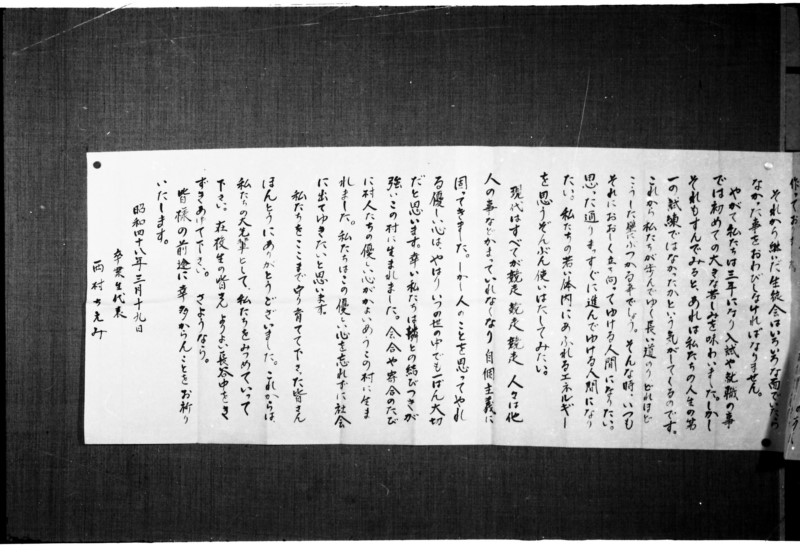 それから継いだ生徒会はいろいろな面でたら
なかった事をおわびしなければなりません。
やがて私たちは三年になり入試や就職の事
では初めての大きな苦しみを味わいました。しかし
それもすんでみると、あれは私たちの人生の第
一の試練ではなかったかという気がしてくるのです。
これから私たちが歩んでゆく長い道のり どれほど
こうした壁にぶつかる事でしょう。そんな時、いつも
それにおおしく立ち向ってゆける人間になりたい。
思った通り、すぐに進んでゆける人間になり
たい。私たちの若い体内にあふれるエネルギー
を思うぞんぶん使いはたしてみたい。
現代はすべてが競走 競走 競走 人々は他
人の事などかまっていれなくなり自個主義に
固ってきました。しかし人のことを思ってやれ
る優しい心は、やはりいつの世の中でも一ばん大切
だと思います。幸い私たちは隣との結びつきが
強いこの村に生まれました。会合や寄合のたび
に村人たちの優しい心がかよいあうこの村に生ま
れました。私たちはこの優しい心を忘れずに社会
に出てゆきたいと思います。
私たちをここまで守り育てて下さった皆さん
ほんとうにありがとうございました。これからは、
私たちの人生の先輩として、私たちをみつめていって
下さい。在校生の皆さん よりよい長谷中をき
ずきあげて下さい。さようなら。
皆様の前途に幸多からんことをお祈り
いたします。
昭和四十八年三月十九日
卒業生代表
西村ちえみ